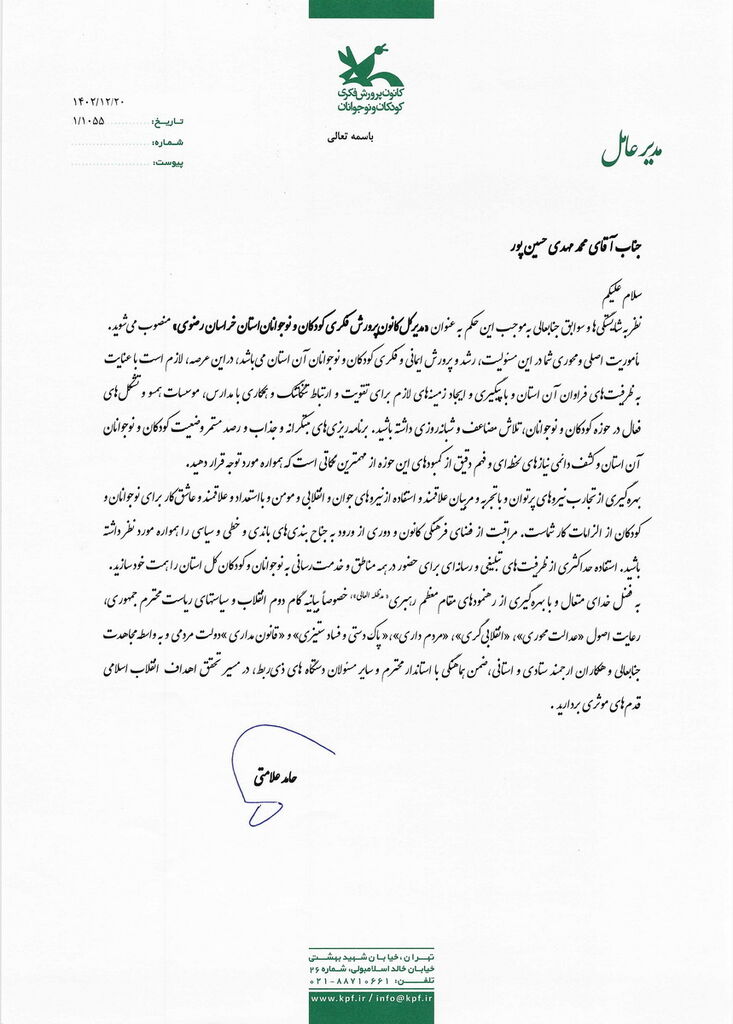 کانون پرورش فکری
کودکان و نوجوانان
باسمه تعالی
۱۴۰۲/۱۲/۲۰
تاریخ: ۱/۱۰۵۵
شماره:
پیوست:
مدیر عامل
جناب آقای محمد مهدی حسین پور
سلام علیکم
نظر به شایستگی‌ها و سوابق جنابعالی به موجب این حکم به عنوان «مدیر کل کانون پرورش فکری کودکان و نوجوانان استان خراسان رضوی» منصوب می‌شوید.
مأموریت اصلی و محوری شما در این مسئولیت، رشد و پرورش ایمانی و فکری کودکان و نوجوانان آن استان می‌باشد، در این عرصه، لازم است با عنایت
به ظرفیت‌های فراوان آن استان و با پیگیری و ایجاد زمینه‌های لازم برای تقویت و ارتباط تنگاتنگ و همکاری با مدارس، موسسات همسو و تشکل‌های
فعال در حوزه کودکان و نوجوانان، تلاش مضاعف و شبانه‌روزی داشته باشید. برنامه‌ریزی‌های مبتکرانه و جذاب و رصد مستمر وضعیت کودکان و نوجوانان
آن استان و کشف دائمی نیازهای لحظه‌ای و فهم دقیق از کمبودهای این حوزه از مهمترین نکاتی است که همواره مورد توجه قرار دهید.
بهره‌گیری از تجارب نیروهای پرتوان و باتجربه و مربیان علاقمند و استفاده از نیروهای جوان و انقلابی و مومن و بااستعداد و علاقمند و عاشق کار برای نوجوانان و
کودکان از الزامات کار شماست. مراقبت از فضای فرهنگی کانون و دوری از ورود به جناح بندی‌های باندی و خطی و سیاسی را همواره مورد نظر داشته
باشید. استفاده حداکثری از ظرفیت‌های تبلیغی و رسانه‌ای برای حضور در همه مناطق و خدمت‌رسانی به نوجوانان و کودکان کل استان را همت خود سازید.
به فضل خدای متعال و با بهره‌گیری از رهنمودهای مقام معظم رهبری «مدظله العالی»، خصوصاً بیانیه گام دوم انقلاب و سیاستهای ریاست محترم جمهوری،
رعایت اصول «عدالت محوری»، «انقلابی‌گری»، «مردم داری»، «پاک دستی و فساد ستیزی» و «قانون مداری» دولت مردمی و به واسطه مجاهدت
جنابعالی و همکاران ارجمند ستادی و استانی، ضمن هماهنگی با استاندار محترم و سایر مسئولان دستگاه های ذی‌ربط، در مسیر تحقق اهداف انقلاب اسلامی
قدم‌های موثری بردارید.
حامد علامتی
تهران، خیابان شهید بهشتی
خیابان خالد اسلامبولی، شماره ۲۶
تلفن: ۰۲۱-۸۸۷۱۰۶۶۱
www.kpf.ir / info@kpf.ir